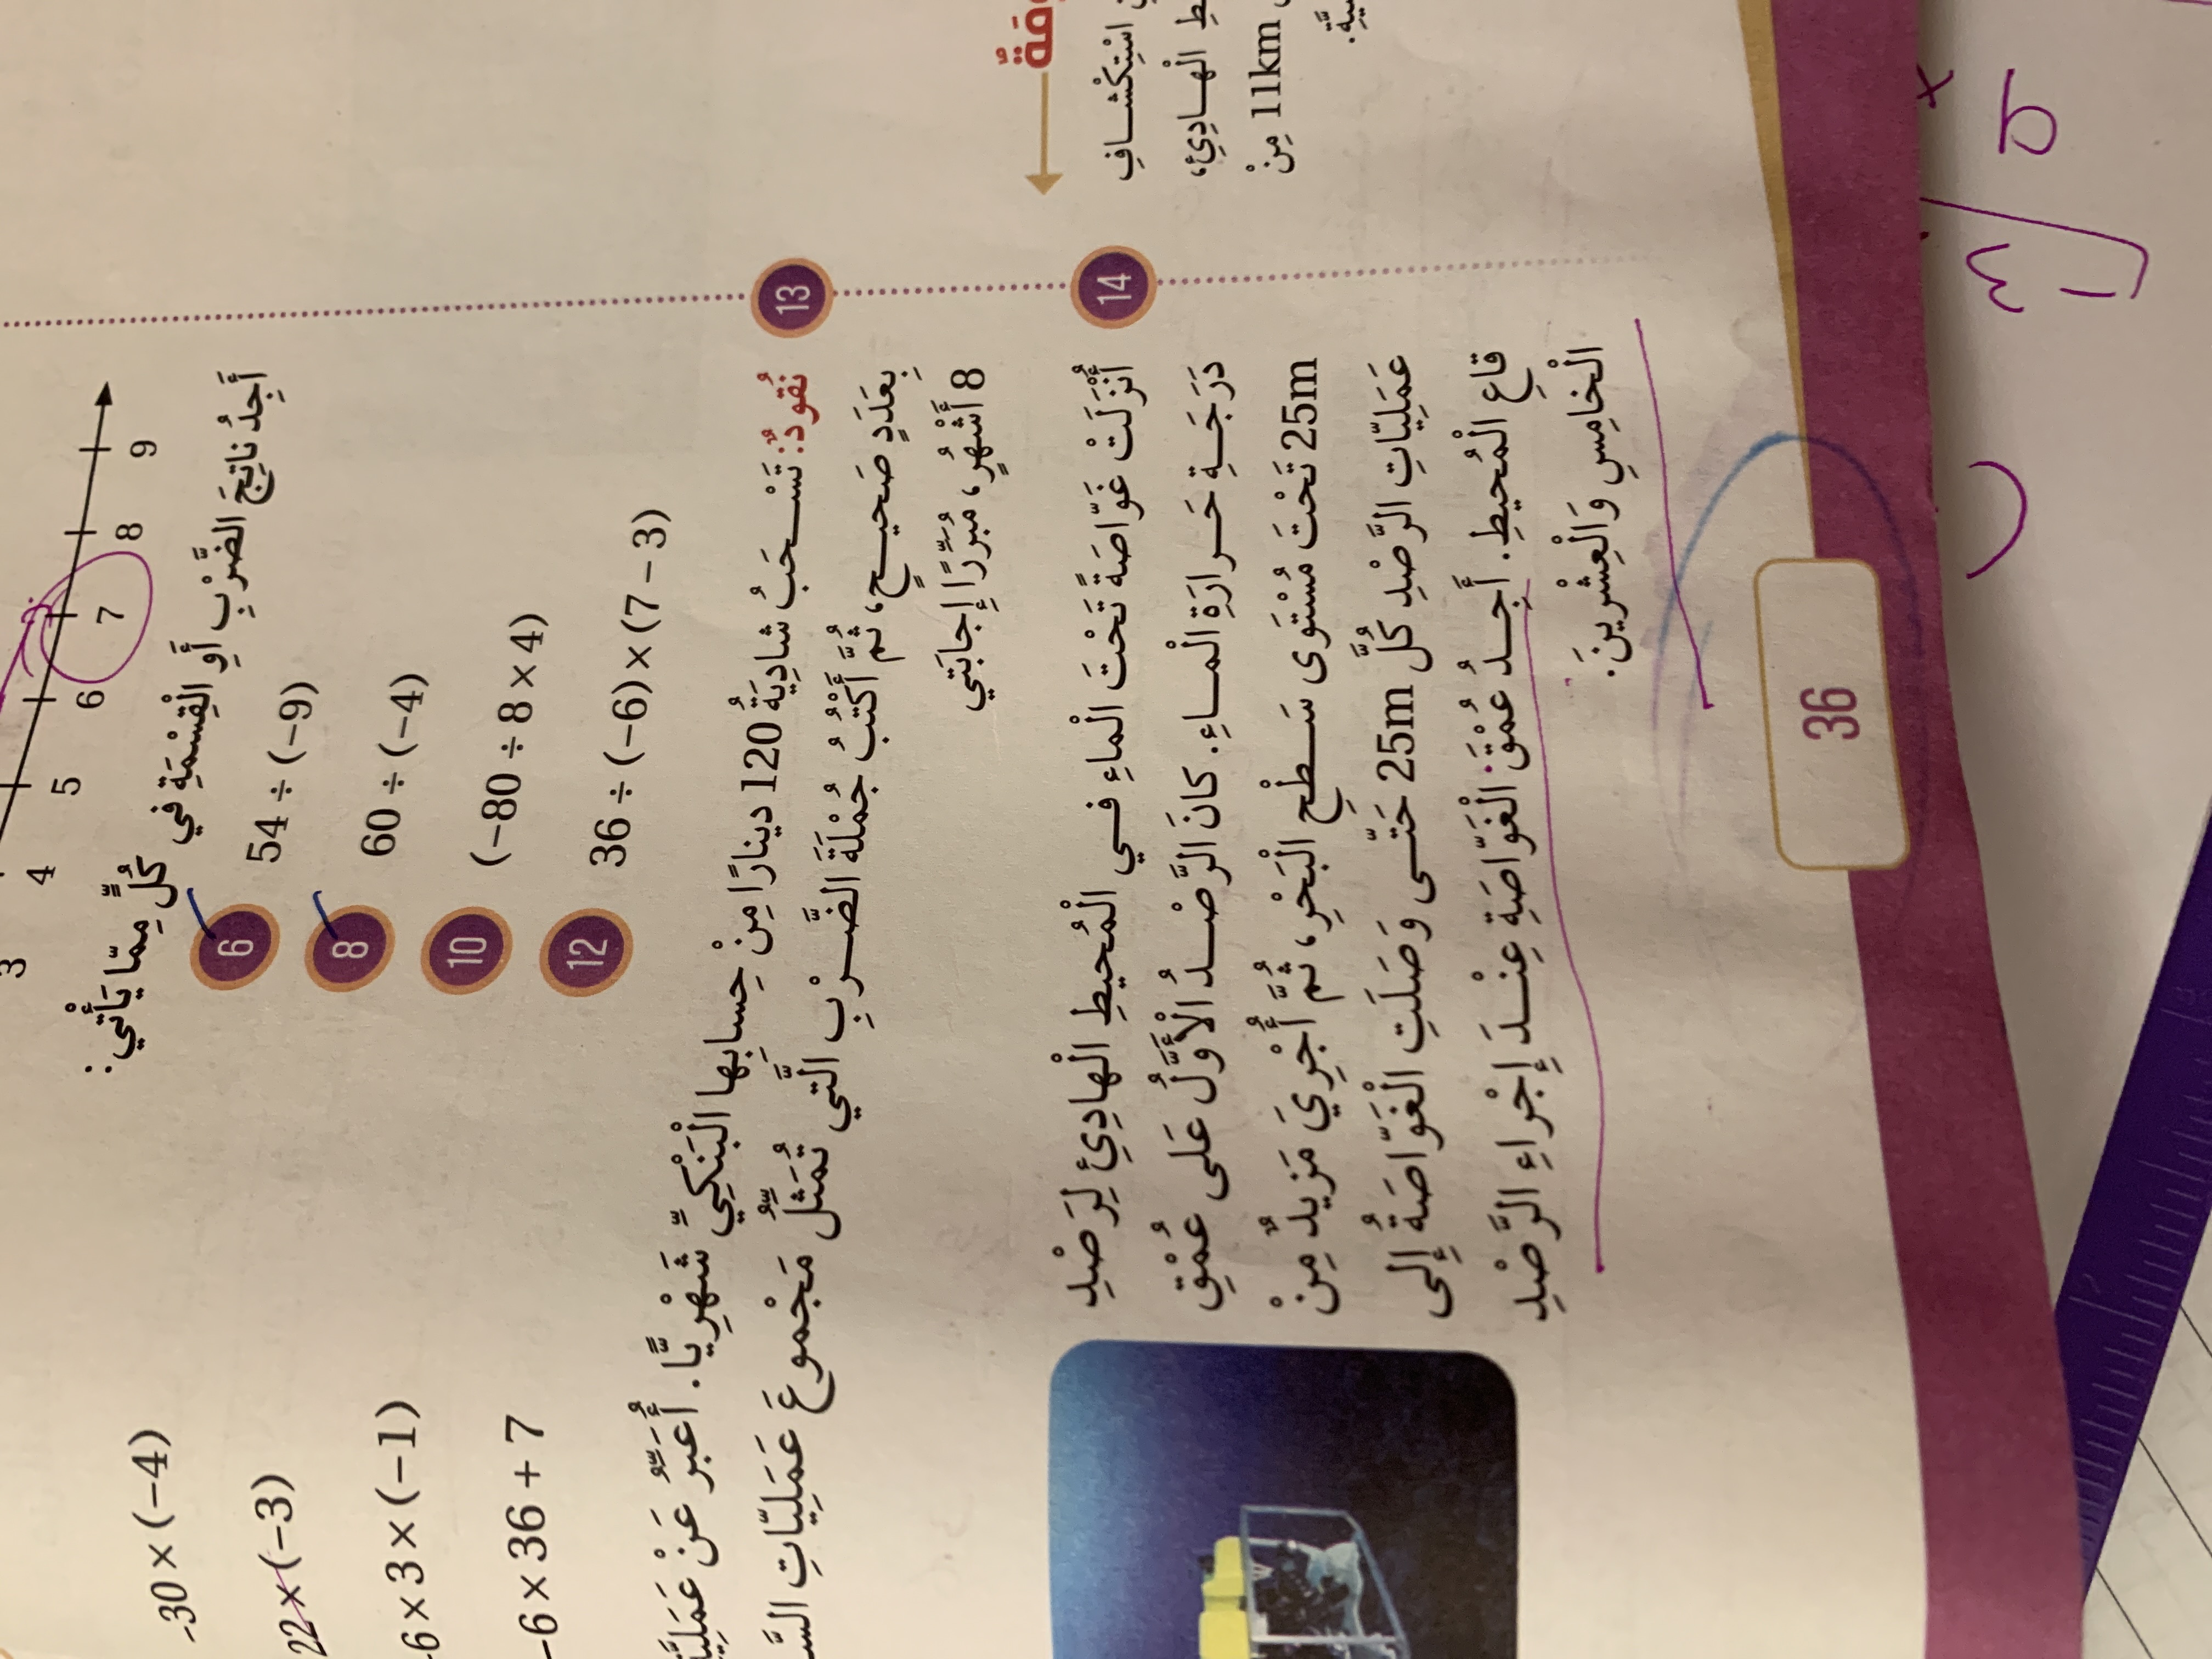 3 4 5 6 7 8 9
أَجِدُ ناتِجَ الضَّرْبِ أَوِ الْقِسْمَةِ في كُلٍّ مِمّا يَأْتي:
6 54 ÷ (−9)
-30 × (−4)
8 60 ÷ (−4)
22 × (−3)
10 (−80 ÷ 8 × 4)
-6 × 3 × (−1)
12 36 ÷ (−6) × (7 − 3)
−6 × 36 + 7
13 نُقودٌ: تَسْحَبُ شادِيَةُ 120 دينارًا مِنْ حِسابِها الْبَنْكِيِّ شَهْرِيًّا. أُعَبِّرُ عَنْ
بِعَدَدٍ صَحيحٍ، ثُمَّ أَكْتُبُ جُمْلَةَ الضَّرْبِ الَّتي تُمَثِّلُ مَجْموعَ عَمَلِيّاتِ
8 أَشْهُرٍ، مُبَرِّرًا إِجابَتي
14 أُنْزِلَتْ غَوّاصَةٌ تَحْتَ الْماءِ في الْمُحيطِ الْهادِئِ لِرَصْدِ
دَرَجَةِ حَرارَةِ الْماءِ. كانَ الرَّصْدُ الْأَوَّلُ عَلى عُمْقِ
25m تَحْتَ مُسْتَوى سَطْحِ الْبَحْرِ، ثُمَّ أُجْرِيَ مَزيدٌ مِنْ
عَمَلِيّاتِ الرَّصْدِ كُلَّ 25m حَتّى وَصَلَتِ الْغَوّاصَةُ إِلى
قاعِ الْمُحيطِ. أَجِدُ عُمْقَ الْغَوّاصَةِ عِنْدَ إِجْراءِ الرَّصْدِ
الْخامِسِ وَالْعِشْرينَ.
36
اسْتِكْشافِ
الْهادِئِ،
11km مِنْ